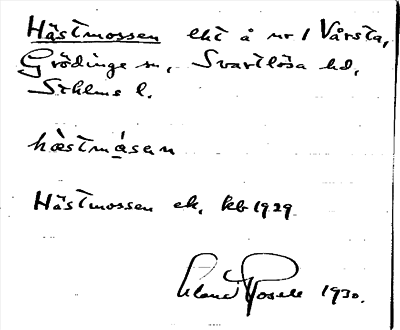 Hästmossen ekt å nr 1 Vårsta,
Grödinge sn, Svartlösa hd,
Sthlms l.
hæ̀stmå̀sεn
Hästmossen ek. kb 1929
1930.